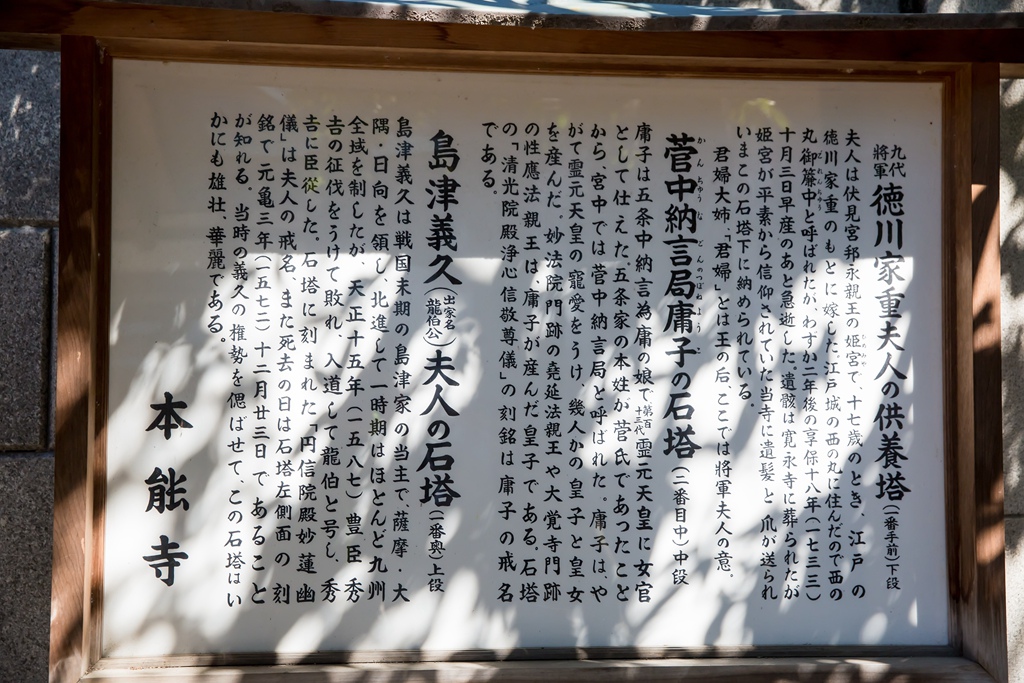 九代将軍 徳川家重夫人の供養塔(一番手前)下段
夫人は伏見宮邦永親王の姫宮で、十七歳のとき、江戸の
徳川家重のもとに嫁した。江戸城の西の丸に住んだので西の
丸御簾中と呼ばれたが、わずか二年後の享保十八年(一七三三)
十月三日早産のあと急逝した。遺骸は寛永寺に葬られたが
姫宮が平素から信仰されていた当寺に遺髪と爪が送られ
いまこの石塔下に納められている。
君婦大姉、「君婦」とは王の后、ここでは将軍夫人の意。
菅中納言局庸子の石塔(二番目中)中段
庸子は五条中納言為庸の娘で第百十二代霊元天皇に女官
として仕えた。五条家の本姓が菅氏であったこと
から、宮中では菅中納言局と呼ばれた。庸子はや
がて霊元天皇の寵愛をうけ、幾人かの皇子と皇女
を産んだ。妙法院門跡の堯延法親王や大覚寺門跡
の性應法親王は、庸子が産んだ皇子である。石塔
の「清光院殿浄心信敬尊儀」の刻銘は庸子の戒名
である。
島津義久(出家名龍伯公)夫人の石塔(一番奥)上段
島津義久は戦国末期の島津家の当主で、薩摩・大
隅・日向を領し、北進して一時期はほとんど九州
全域を制したが、天正十五年(一五八七)豊臣秀
吉の征伐をうけて敗れ、入道して龍伯と号し、秀
吉に臣従した。石塔に刻まれた「円信院殿妙蓮幽
儀」は夫人の戒名、また死去の日は石塔左側面の刻
銘で元亀三年(一五七二)十二月廿三日であること
が知れる。当時の義久の権勢を偲ばせて、この石塔はい
かにも雄壮、華麗である。
本能寺